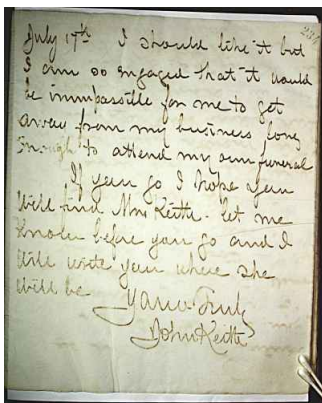 July 17th I should like it but
I am so engaged that it would
be immpossible for me to get
away from my business long
enough to attend my own funeral
If you go I hope you
Will find Mrs Keith. let me
Know before you go and I
Will write you where she
Will be
Yours Truly
John Keith